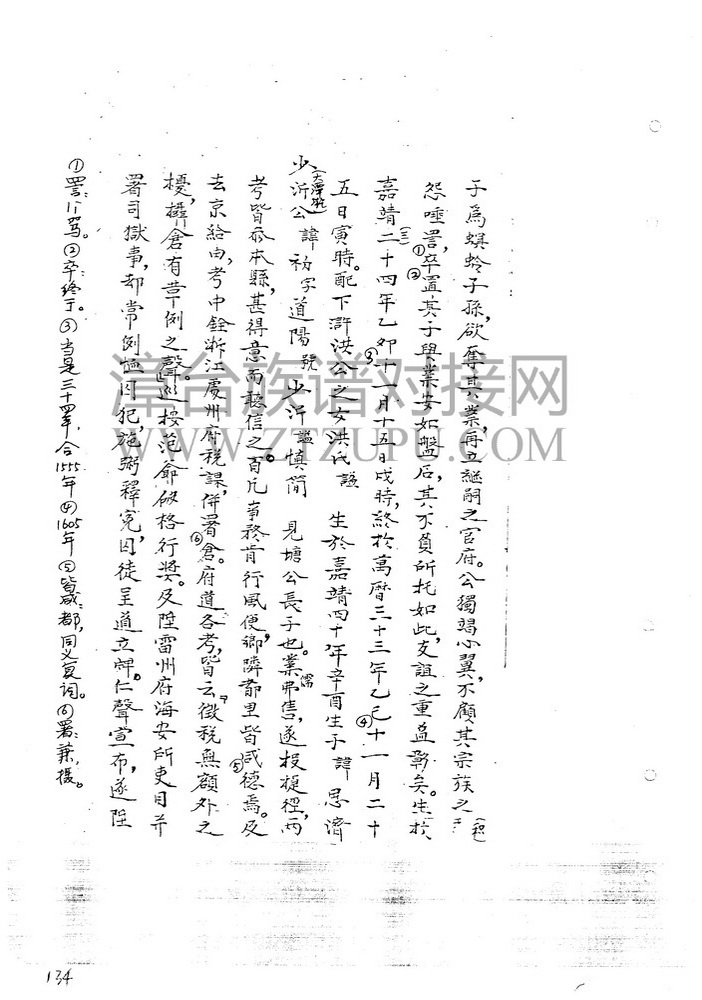 子爲螟蛉子孫,欲奪其業,再立繼嗣之官府。公獨竭心翼,不顧其宗族之
怨唾詈①,卒②置其子與業安如盤后,其不負所托如此,友誼之重益彰矣。生於
嘉靖二(三)十四年乙卯③十一月十五日戌時,終於萬曆三十三年乙巳④十一月二十
五日寅時。配下許洪公之女洪氏諡 生於嘉靖四十年辛酉生子 諱思濟
少沂公 諱 初字道陽 號少沂 諡慎簡 見塘公長子也。業儒弗售,遂投捷徑,兩
考皆本縣,甚得意而聽信之。百凡事務肯行風便,鄉隣都里皆咸⑤德焉。及
去京給由,考中銓浙江處州府稅課,併署⑥倉。府道各考,皆云『徵稅無額外之
擾,橫倉有昔例之聲』。巡按范爺 格行奬。及陞雷州府海安所吏目并
署司獄事,却常例恤囚犯,施粥釋冤,囚徒呈道立牌。仁聲宣布,遂陞
①詈:骂。②卒:终于。③当是三十四年,合1555年④1605年⑤皆咸:都,同义复词。⑥署:兼,摄。
134
漳台族谱对接网
WWW.ZTZUPU.COM